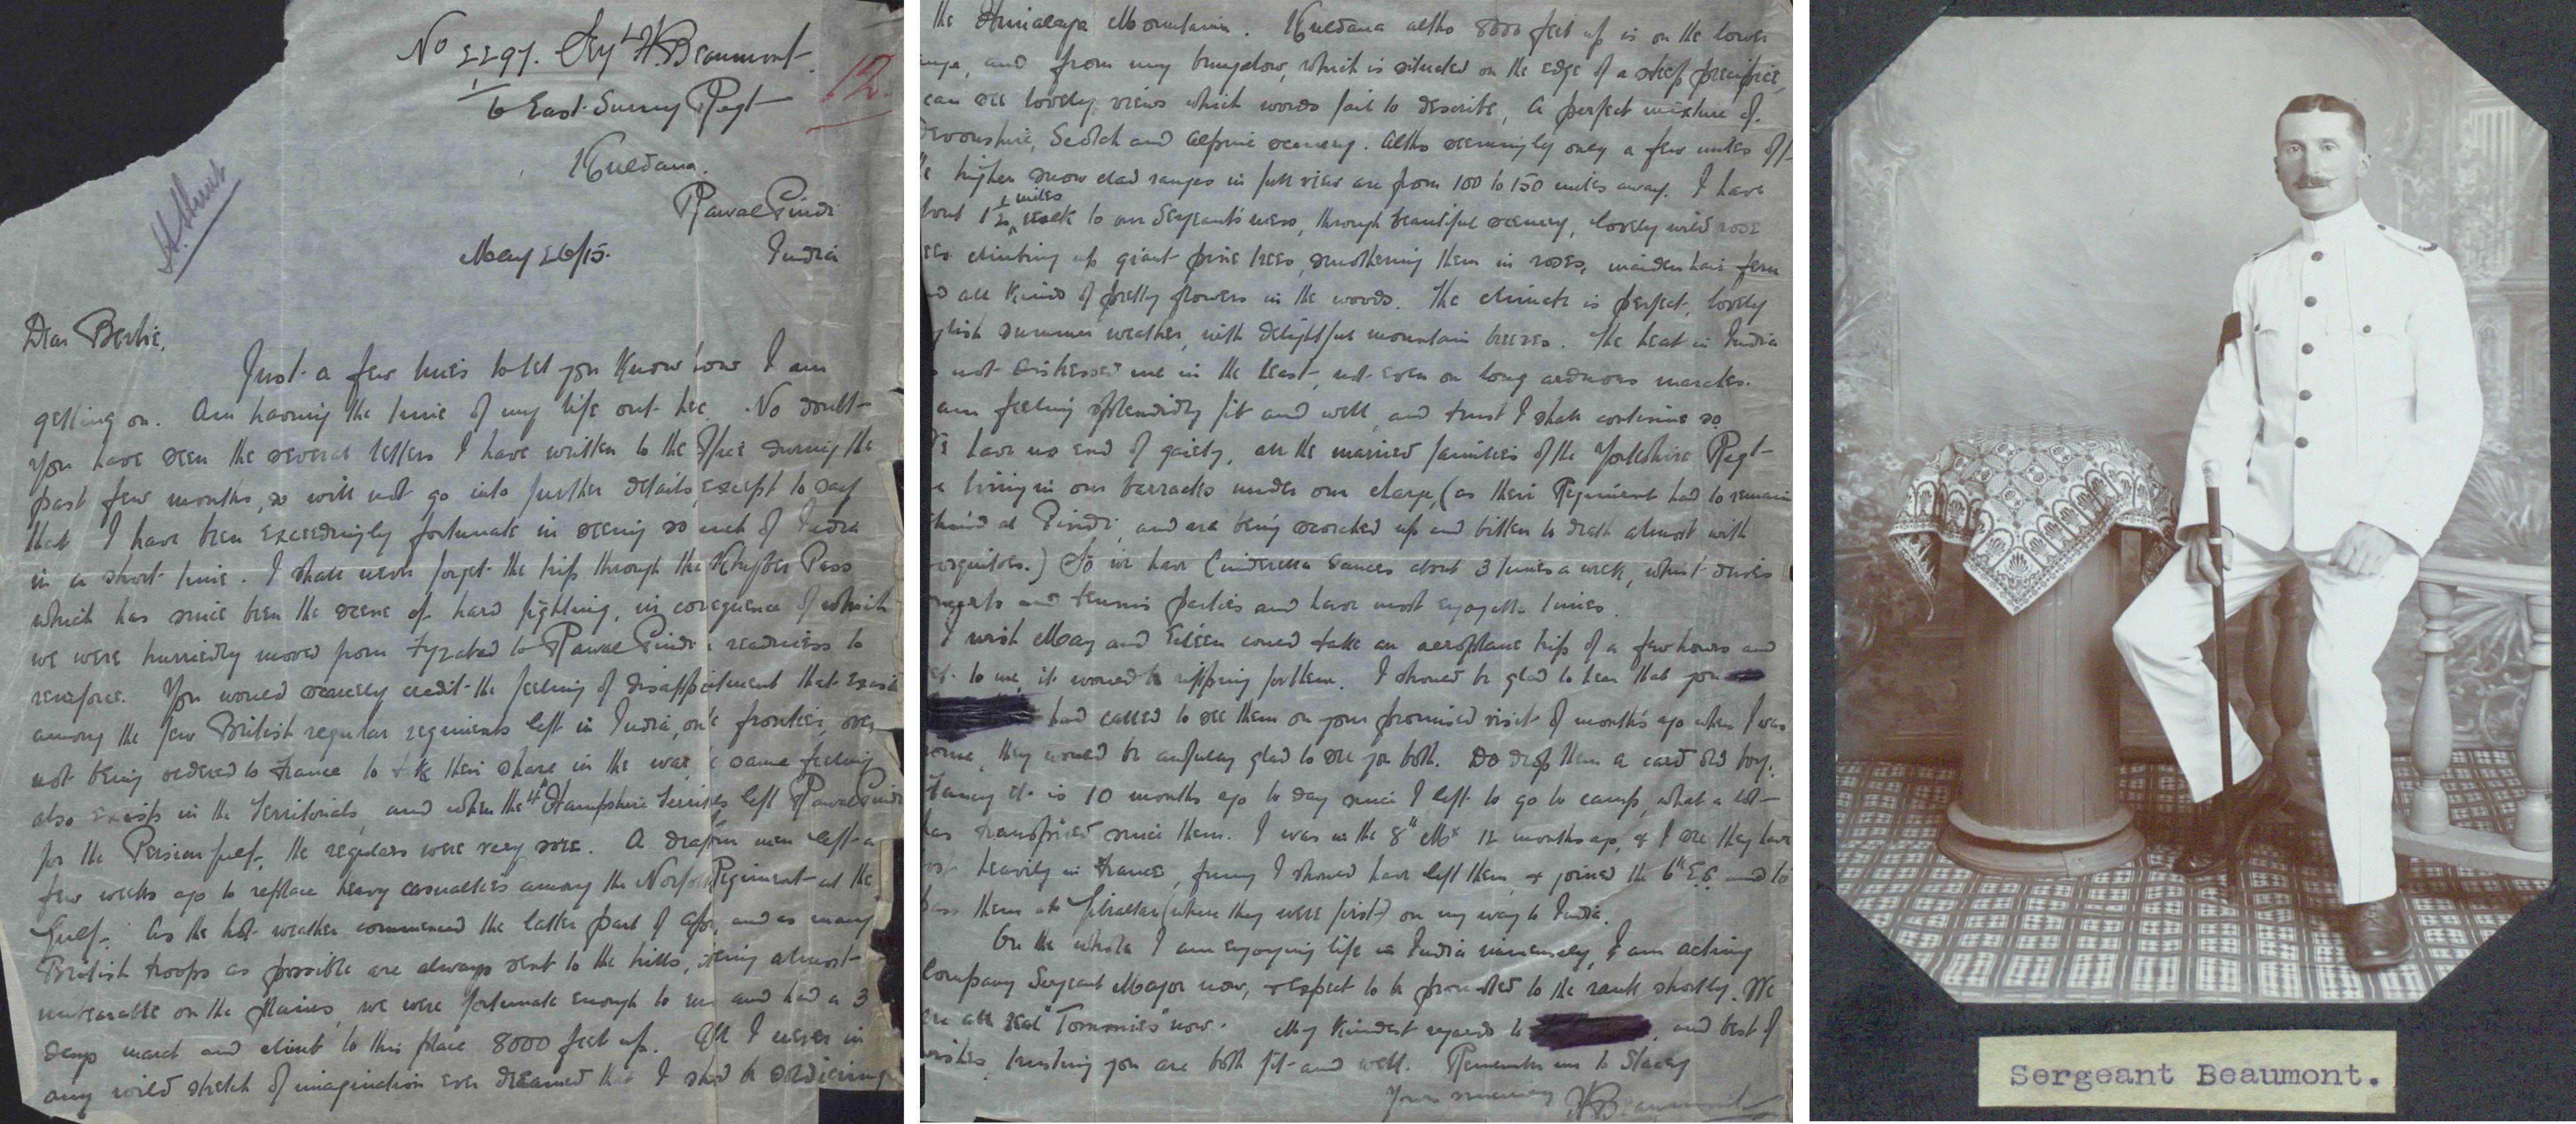 No 2297. Sgt H. Beaumont.
1/6 East Surrey Regt
12.
Kuldana.
H. Hunt
Rawal Pindi
May 26/15. India
Dear Bertie,
Just a few lines to let you know how I am
getting on. Am having the time of my life out here. No doubt
you have seen the several letters I have written to the Office during the
past few months, so will not go into further details, except to say
that I have been exceedingly fortunate in seeing so much of India
in a short time. I shall never forget the trip through the Khyber Pass
which has since been the scene of hard fighting, in consequence of which
we were hurriedly moved from Fyzabad to Rawal Pindi readiness to
reinforce. You would scarcely credit the feeling of disappointment that exists
among the few British regular regiments left in India, on frontier, over
not being ordered to France to take their share in the war, same feeling
also exists in the Territorials, and when the 4th Hampshire Terriers left Rawal Pindi
for the Persian Gulf, the regulars were very sore. A draft men left a
few weeks ago to replace heavy casualties among the Norfolk Regiment at the
Gulf. As the hot weather commenced the latter part of Apr, and as many
British troops as possible are always sent to the hills, being almost
unbearable on the plains, we were fortunate enough to and had a 3
days march and climb to this place 8000 feet up. I never in
any wild stretch of imagination ever dreamed that I shd be soldiering
the Himalaya Mountains. Kuldana altho 8000 feet up is on the lower
and from my bungalow, which is situated on the edge of a steep precipice,
can see lovely views which words fail to describe, a perfect mixture of
Devonshire, Scotch and Alpine scenery. Altho seemingly only a few miles off
higher snow clad ranges in full view are from 100 to 150 miles away. I have
bout 1 1/2 miles walk to our Sergeants mess, through beautiful scenery, lovely wild rose
climbing up giant pine trees, smothering them in roses, maiden hair fern
all kinds of pretty flowers in the woods. The climate is perfect, lovely
glish summer weather, with delightful mountain breezes. The heat in India
not distressed me in the least, not even on long arduous marches.
am feeling splendidly fit and well, and trust I shall continue so.
We have no end of gaiety, all the married families of the Yorkshire Regt
living in our barracks under our charge, (as their Regiment had to remain
behind at Pindi, and are being scorched up and bitten to death almost with
osquitoes.) So we have Cinderella dances about 3 times a week, whist drives
and tennis parties and have most enjoyable times.
I wish May and Eileen could take an aeroplane trip of a few hours and
to me, it would be ripping for them. I should be glad to hear that you
had called to see them on your promised visit of months ago when I was
home, they would be awfully glad to see you both. Do drop them a card old boy.
Fancy it is 10 months ago to day since I left to go to camp, what a lot
has transpired since then. I was in the 8th Mx 12 months ago, & I see they have
heavily in France, funny I should have left them, & joined the 6th E.S. and to
pass them at Gibraltar (where they were first) on my way to India.
On the whole I am enjoying life in India immensely, I am acting
Company Sergeant Major now, & expect to be promoted to the rank shortly. We
are all real "Tommies" now. My kindest regards to and best of
wishes, trusting you are both fit and well. Remember me to Stacey
Yours sincerely H Beaumont
Sergeant Beaumont.